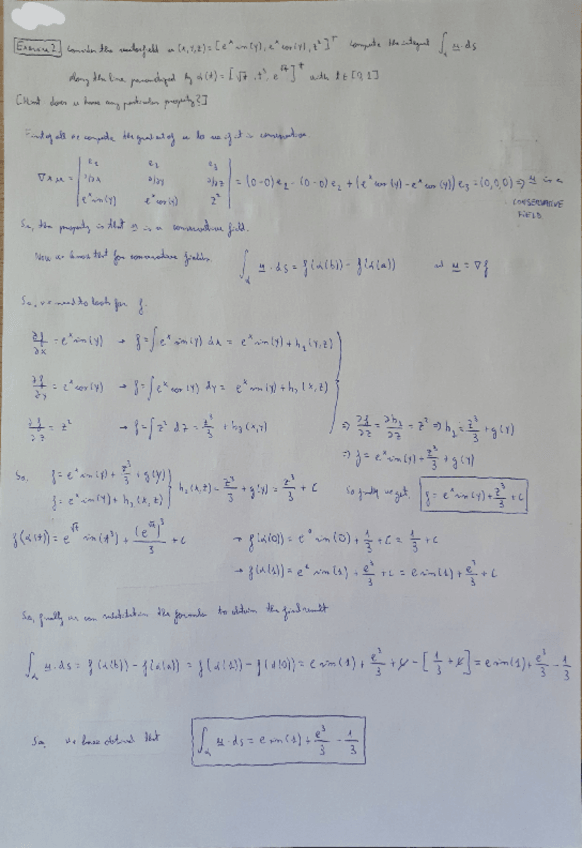 Exercise 2. Consider the vectorfield u(x,y,z)=[e^x sin(y), e^x cos(y), z²]^T compute the integral ∫_α u·ds
along the line parametrized by α(t)=[√t, t³, e^√t]^T with t∈[0,1]
[Hint does u have any particular property?]
First of all we compute the of u to see if it is conservative.
∇×u = | e₁ e₂ e₃ |
| ∂/∂x ∂/∂y ∂/∂z | = (0-0)e₁ - (0-0)e₂ + (e^x cos(y) - e^x cos(y))e₃ = (0,0,0) ⇒ u is a
| e^x sin(y) e^x cos(y) z² | CONSERVATIVE FIELD
So, the property is that u is a conservative field.
Now we know that for conservative fields ∫_α u·ds = f(α(b)) - f(α(a)) u = ∇f
So, we need to look for f.
∂f/∂x = e^x sin(y) → f = ∫e^x sin(y) dx = e^x sin(y) + h₁(y,z)
∂f/∂y = e^x cos(y) → f = ∫e^x cos(y) dy = e^x sin(y) + h₂(x,z)
∂f/∂z = z² → f = ∫z² dz = z³/3 + h₃(x,y) ⇒ ∂f/∂z = ∂h₁/∂z = z² ⇒ h₁ = z³/3 + g(y)
⇒ f = e^x sin(y) + z³/3 + g(y)
So, f = e^x sin(y) + z³/3 + g(y)
f = e^x sin(y) + h₂(x,z) } h₂(x,z) = z³/3 + g(y) = z³/3 + C So finally we get f = e^x sin(y) + z³/3 + C
f(α(t)) = e^√t sin(t³) + (e^√t)³/3 + C → f(α(0)) = e⁰ sin(0) + 1/3 + C = 1/3 + C
→ f(α(1)) = e¹ sin(1) + e³/3 + C = e sin(1) + e³/3 + C
So, finally we can the formula to obtain the final result
∫_α u·ds = f(α(b)) - f(α(a)) = f(α(1)) - f(α(0)) = e sin(1) + e³/3 + C - [1/3 + C] = e sin(1) + e³/3 - 1/3
So, we have obtained that ∫_α u·ds = e sin(1) + e³/3 - 1/3